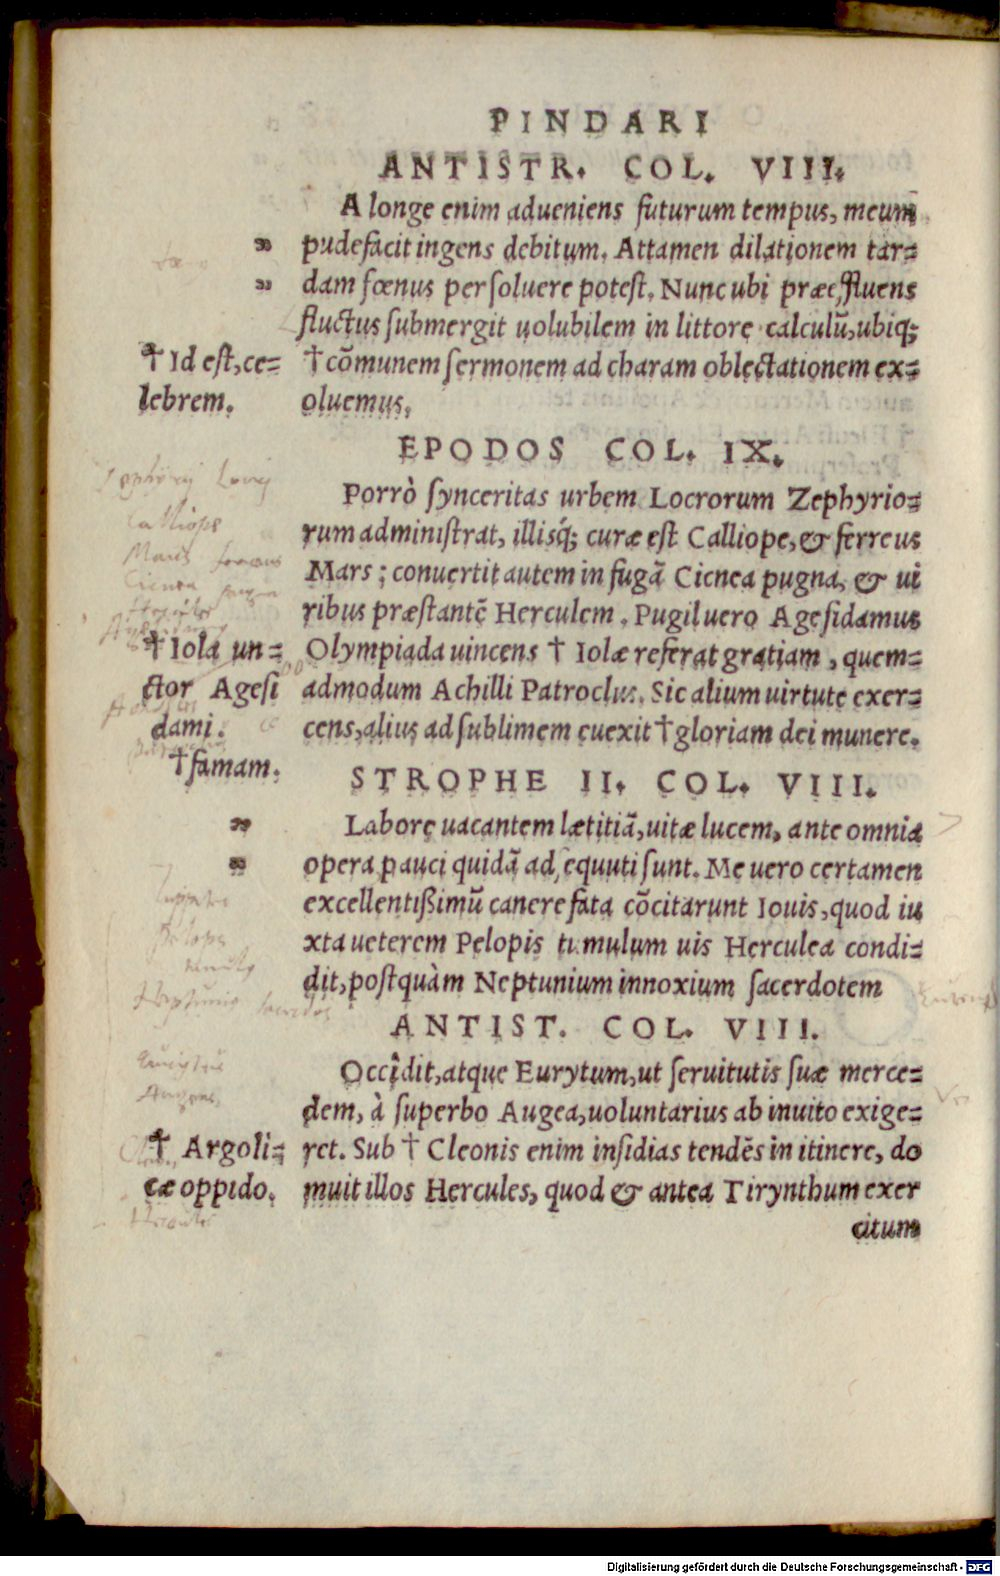 PINDARI
ANTISTR. COL. VIII.
A longe enim adueniens futurum tempus, meum
„ pudefacit ingens debitum. Attamen dilationem tar=
„ dam fœnus persoluere potest. Nunc ubi præeffluens
fluctus submergit uolubilem in littore calculū, ubiq;
† Id est, ce=
lebrem.
† cōmunem sermonem ad charam oblectationem ex=
oluemus.
EPODOS COL. IX.
Porrò synceritas urbem Locrorum Zephyrio=
rum administrat, illisq́; curæ est Calliope, & ferreus
Mars; conuertit autem in fugā Cicnea pugna, & ui
ribus præstantē Herculem. Pugil uero Agesidamus
† Iola un=
ctor Agesi
dami.
† famam.
Olympiada uincens † Iolæ referat gratiam, quem=
admodum Achilli Patroclus. Sic alium uirtute exer=
cens, alius ad sublimem euexit † gloriam dei munere.
STROPHE II. COL. VIII.
„ Labore uacantem lætitiā, uitæ lucem, ante omnia
„ opera pauci quidā adsequuti sunt. Me uero certamen
excellentißimū canere fata cōcitarunt Iouis, quod iu
xta ueterem Pelopis tumulum uis Herculea condi=
dit, postquàm Neptunium innoxium sacerdotem
Calliope
Mars
Pelops
ANTIST. COL. VIII.
Occidit, atque Eurytum, ut seruitutis suæ merce=
dem, à superbo Augea, uoluntarius ab inuito exige=
† Argoli=
cæ oppido.
ret. Sub † Cleonis enim insidias tendēs in itinere, do
muit illos Hercules, quod & antea Tirynthum exer
citum
Digitalisierung gefördert durch die Deutsche Forschungsgemeinschaft - DFG